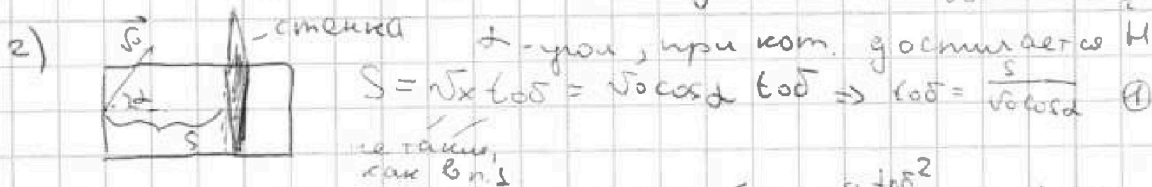 2) v₀ α S - стенка α - угол, при кот. достигается H
S = vₓ tоб = v₀ cosα tоб ⇒ tоб = S / (v₀ cosα) ①
не такие,
как в п.1